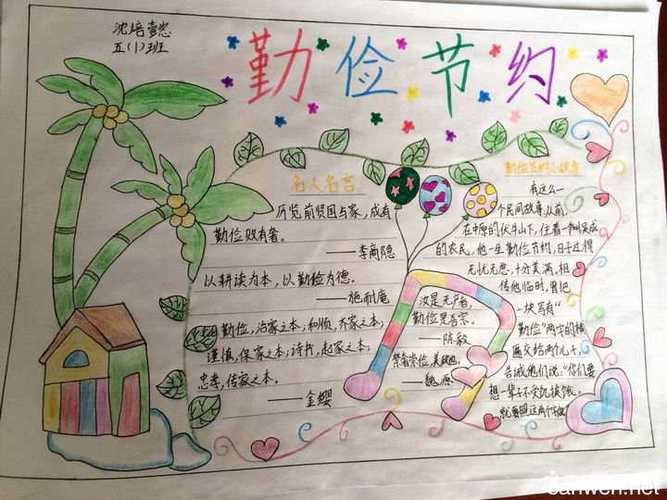 沈培壹
五(1)班
勤俭节约
名人名言
历览前贤国与家，成有
勤俭败有奢。
——李商隐
以耕读为本，以勤俭为德。
——施耐庵
勤俭，治家之本；和顺，齐家之本；
谨慎，保家之本；诗书，起家之本；
忠孝，传家之本。
——金缨
汝是无产者，
勤俭是吾宗。
——陈毅
——魏源
勤俭节约
有这么一
个民间故事，从前，
在中原的伏牛山下，住着一个叫吴成
的农民，他一生勤俭节约，日子过得
无忧无虑，十分美满，相
传他临时，曾把
一块写有“
勤俭”两字的横
匾交给两个儿子，
告诫他们说：“你们要
想一辈子不受饥挨饿，
就要照这两个字
canwen.net